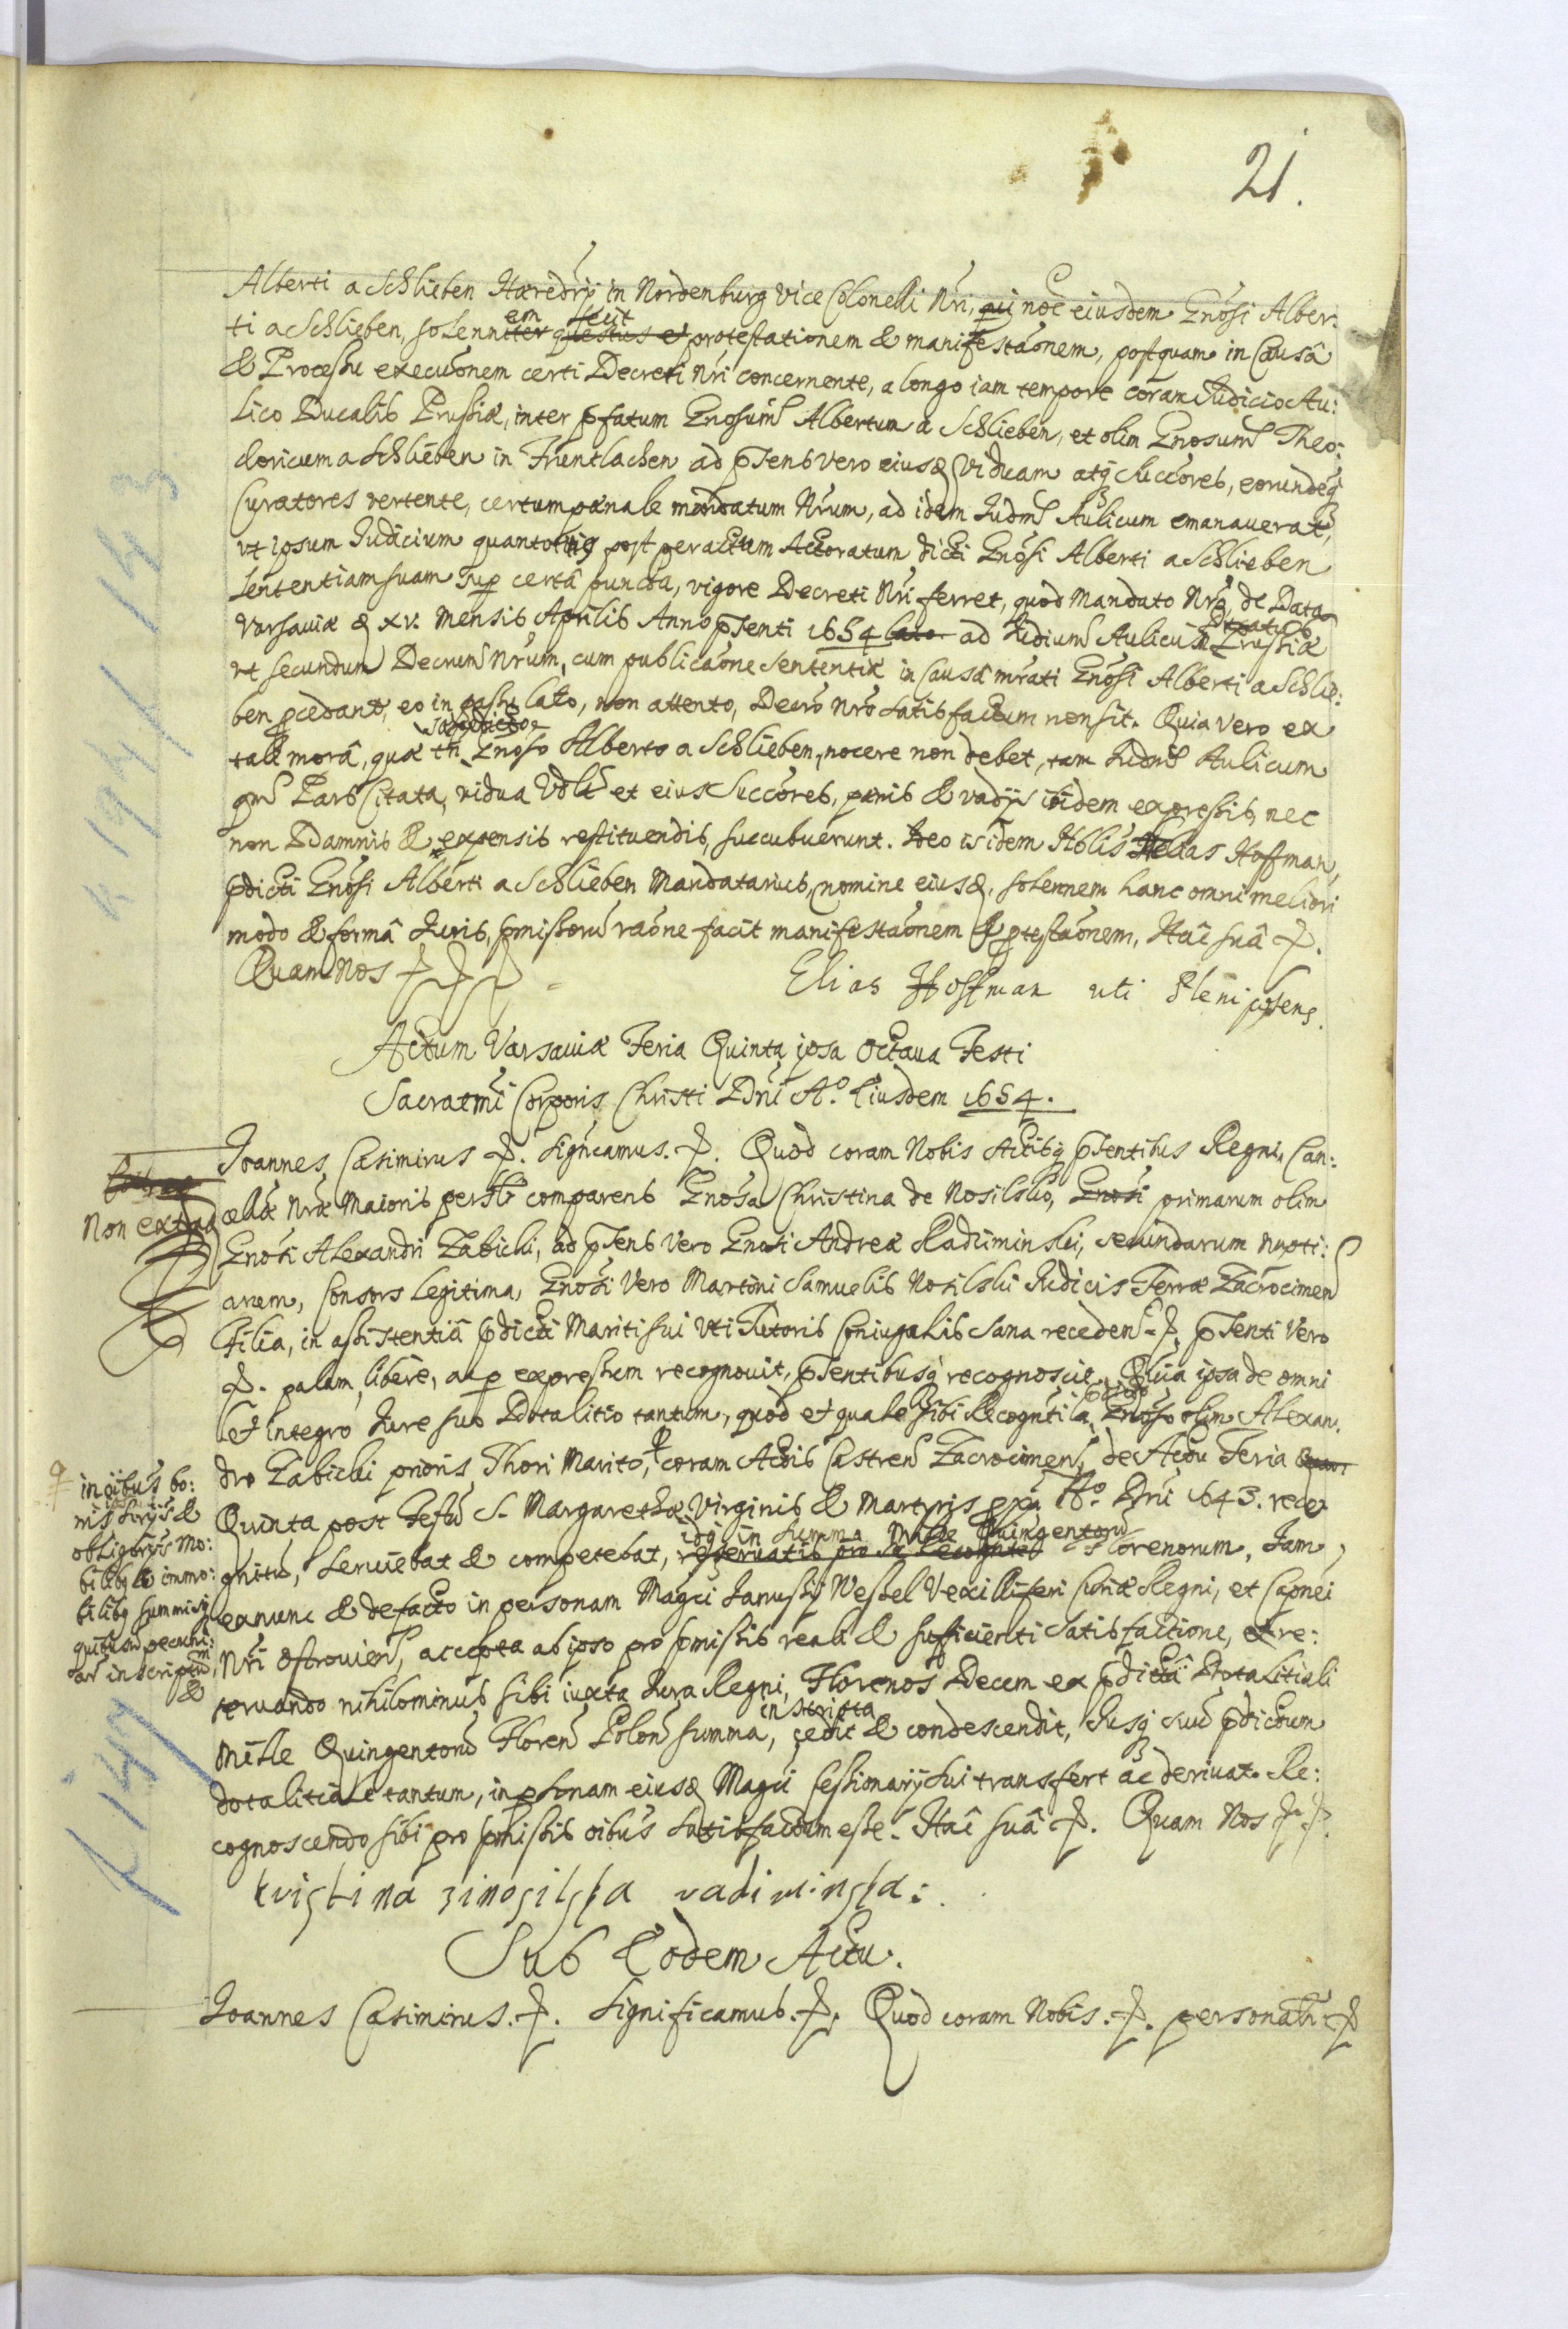 21.
Alberti a Schlieben Hæredrij in Nordenburg Vice Colonelli Nri, qui noe eiusdem Gnosi Alber:
ti a Schlieben, solenniter em questus et fecit protestationem & manifestaonem, postquam in Causâ
& Processu executionem certi Decreti Nri concernente, a longo iam tempore coram Iudicio Au:
lico Ducalis Prussiæ, inter pfatum Gnosum Albertum a Schlieben, et olim Gnosum Theo:
doricum a Schlieben in Truntlachen ad psens vero eiusq Viduam atq Succores, eorundeq
Curatores vertente, certum pænale mandatum Nrum, ad idem Iudm Aulicum emanaverat,
vt ipsum Iudicium quanto post peractum Actoratum dicti Gnosi Alberti a Schlieben
sententiam suam sup certâ puncta, vigore Decreti Nri ferret, quod Mandato Nro, de Data
Varsaviæ xv. Mensis Aprilis Anno psenti 1654 lato ad Iudium Aulicum Ducatus Prussiæ
vt secundum Decrum Nrum, cum publicaone sententiæ in Causâ mrati Gnosi Alberti a Schlie:
ben pcedant, eo in passu lato, non attento, Decro Nro satisfactum non sit. Quia vero ex
tali morâ, quæ tn Gnoso Alberto a Schlieben, nocere non debet, tam Iudm Aulicum
qm Pars Citata, vidua et eius Succores, pænis & vadijs ibidem expressis, nec
non Damnis & expensis restituendis, succubuerunt. Ideo is idem Nblis Elias Hoffman,
pdicti Gnosi Alberti a Schlieben Mandatarius, nomine eiusd, solennem hanc omni meliori
modo & formâ Iuris, pmissoru raone facit manifestaonem & ptestaonem, Mâe suâ p.
Quam Nos p p p
Elias Hoffman uti Plenipotens.
Actum Varsaviæ Feria Quinta ipsa Octava Festi
Sacratmi Corporis Christi Dni Ao. Eiusdem 1654.
Non extrad
Joannes Casimirus p. Signicamus. p. Quod coram Nobis Actibq psentibus Regni, Can:
cellæ Nræ Maioris perslr comparens Gnosa Christina de Nosilsko, Gnosi primarum olim
Gnosi Alexandri Zabicki, ad psens vero Gnosi Andreæ Radziminski, secundarum nupti:
arum, Consors legitima, Gnosi vero Martini Samuelis Nosilski Iudicis Terræ Zacrocimen
Filia, in assistentiâ pdicti Mariti sui vti Tutoris Coniugalis sana recedens p. psenti vero
p. palam, libere, ac p expressum recognovit, psentibusq recognoscit. Quia ipsa de omni
et integro Iure suo Dotalitio tantum, quod et quale sibi Recognti a pdicto Gnoso olim Alexan:
dro Zabicki prioris Thori Marito, coram Actis Castren Zacrocimen, de Actu Feria
Quinta post Festu S. Margarethæ Virginis & Martyris pxa Ao. Dni 1643. reco
gnitu, serviebat & competebat, idq in summa Mille Quingentoru Florenorum, Iam
exnunc & de facto in personam Magci Ianussij Wessel Vexilliferi Curiæ Regni, et Capnei
Nri Ostrovien, accepta ab ipso pro pmissis reali & sufficienti satisfactione, et re:
servando nihilominus sibi iuxta Iura Regni, Florenos Decem ex pdictâ Dotalitiali
Mille Quingentoru Floren Polon summa, inscripta cedit & condescendit, Iusq suu pdictum
dotalitiale tantum, in psonam eiusq Magci Cessionarij sui transfert ac derivat. Re:
cognoscendo sibi pro pmissis oibus satisfactum esse. Mâe suâ p. Quam Nos p p.
in oibus bo:
nis suis
obligorijs mo:
bilibq & immo:
bilibq summisq
quibusvi pecuni:
ar inscriptis
&
kristina zinosilska radiminska:
Sub Eodem Actu.
Joannes Casimirus. p. Significamus. p. Quod coram Nobis. p. personalr p
k 194 / 143
k 149